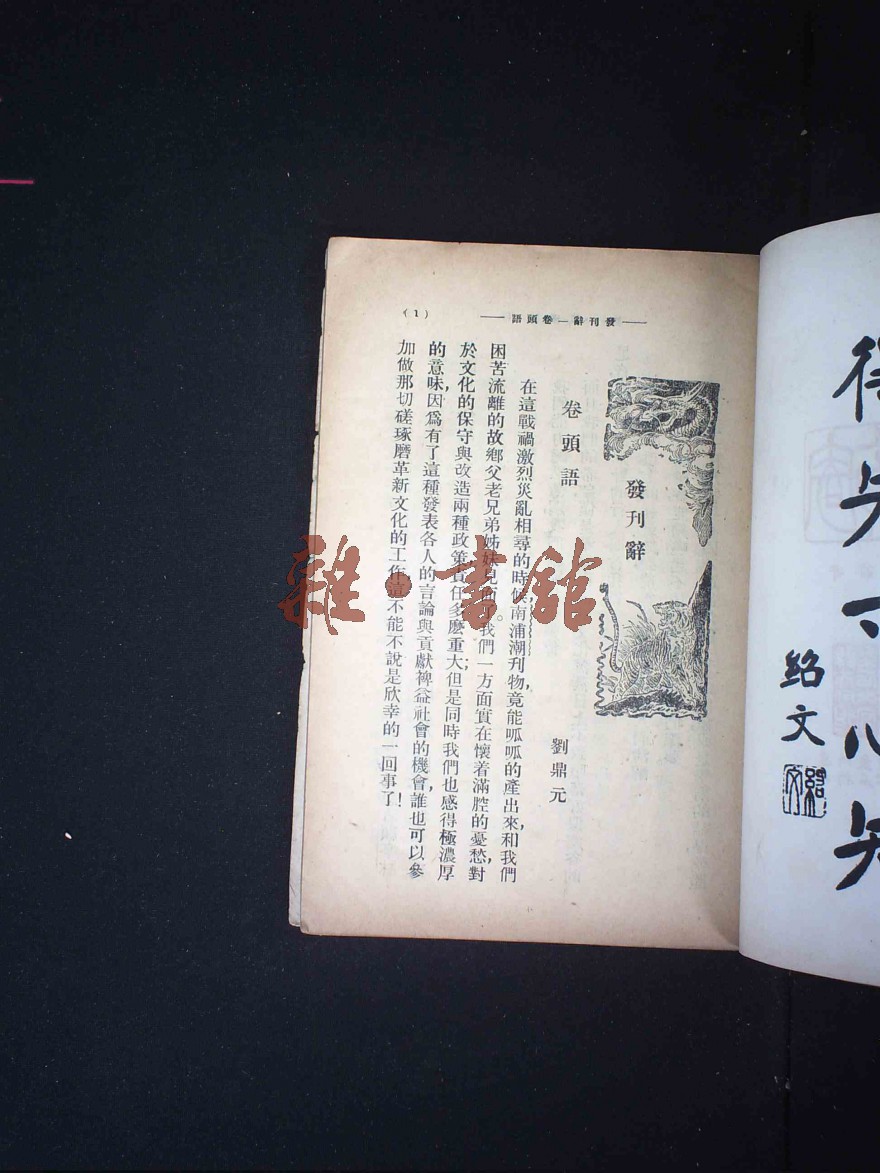 得失寸心知
紹文
紹文
發刊辭—卷頭語
(1)
發刊辭
卷頭語
劉鼎元
在這戰禍激烈災亂相尋的時候,南浦潮刊物,竟能呱呱的產出來,和我們
困苦流離的故鄉父老兄弟姊妹見面了。我們一方面實在懷着滿腔的憂愁,對
於文化的保守與改造兩種政策責任多麽重大;但是同時我們也感得極濃厚
的意味,因爲有了這種發表各人的言論與貢獻裨益社會的機會,誰也可以參
加做那切磋琢磨革新文化的工作,這不能不說是欣幸的一回事了!
雜·書館